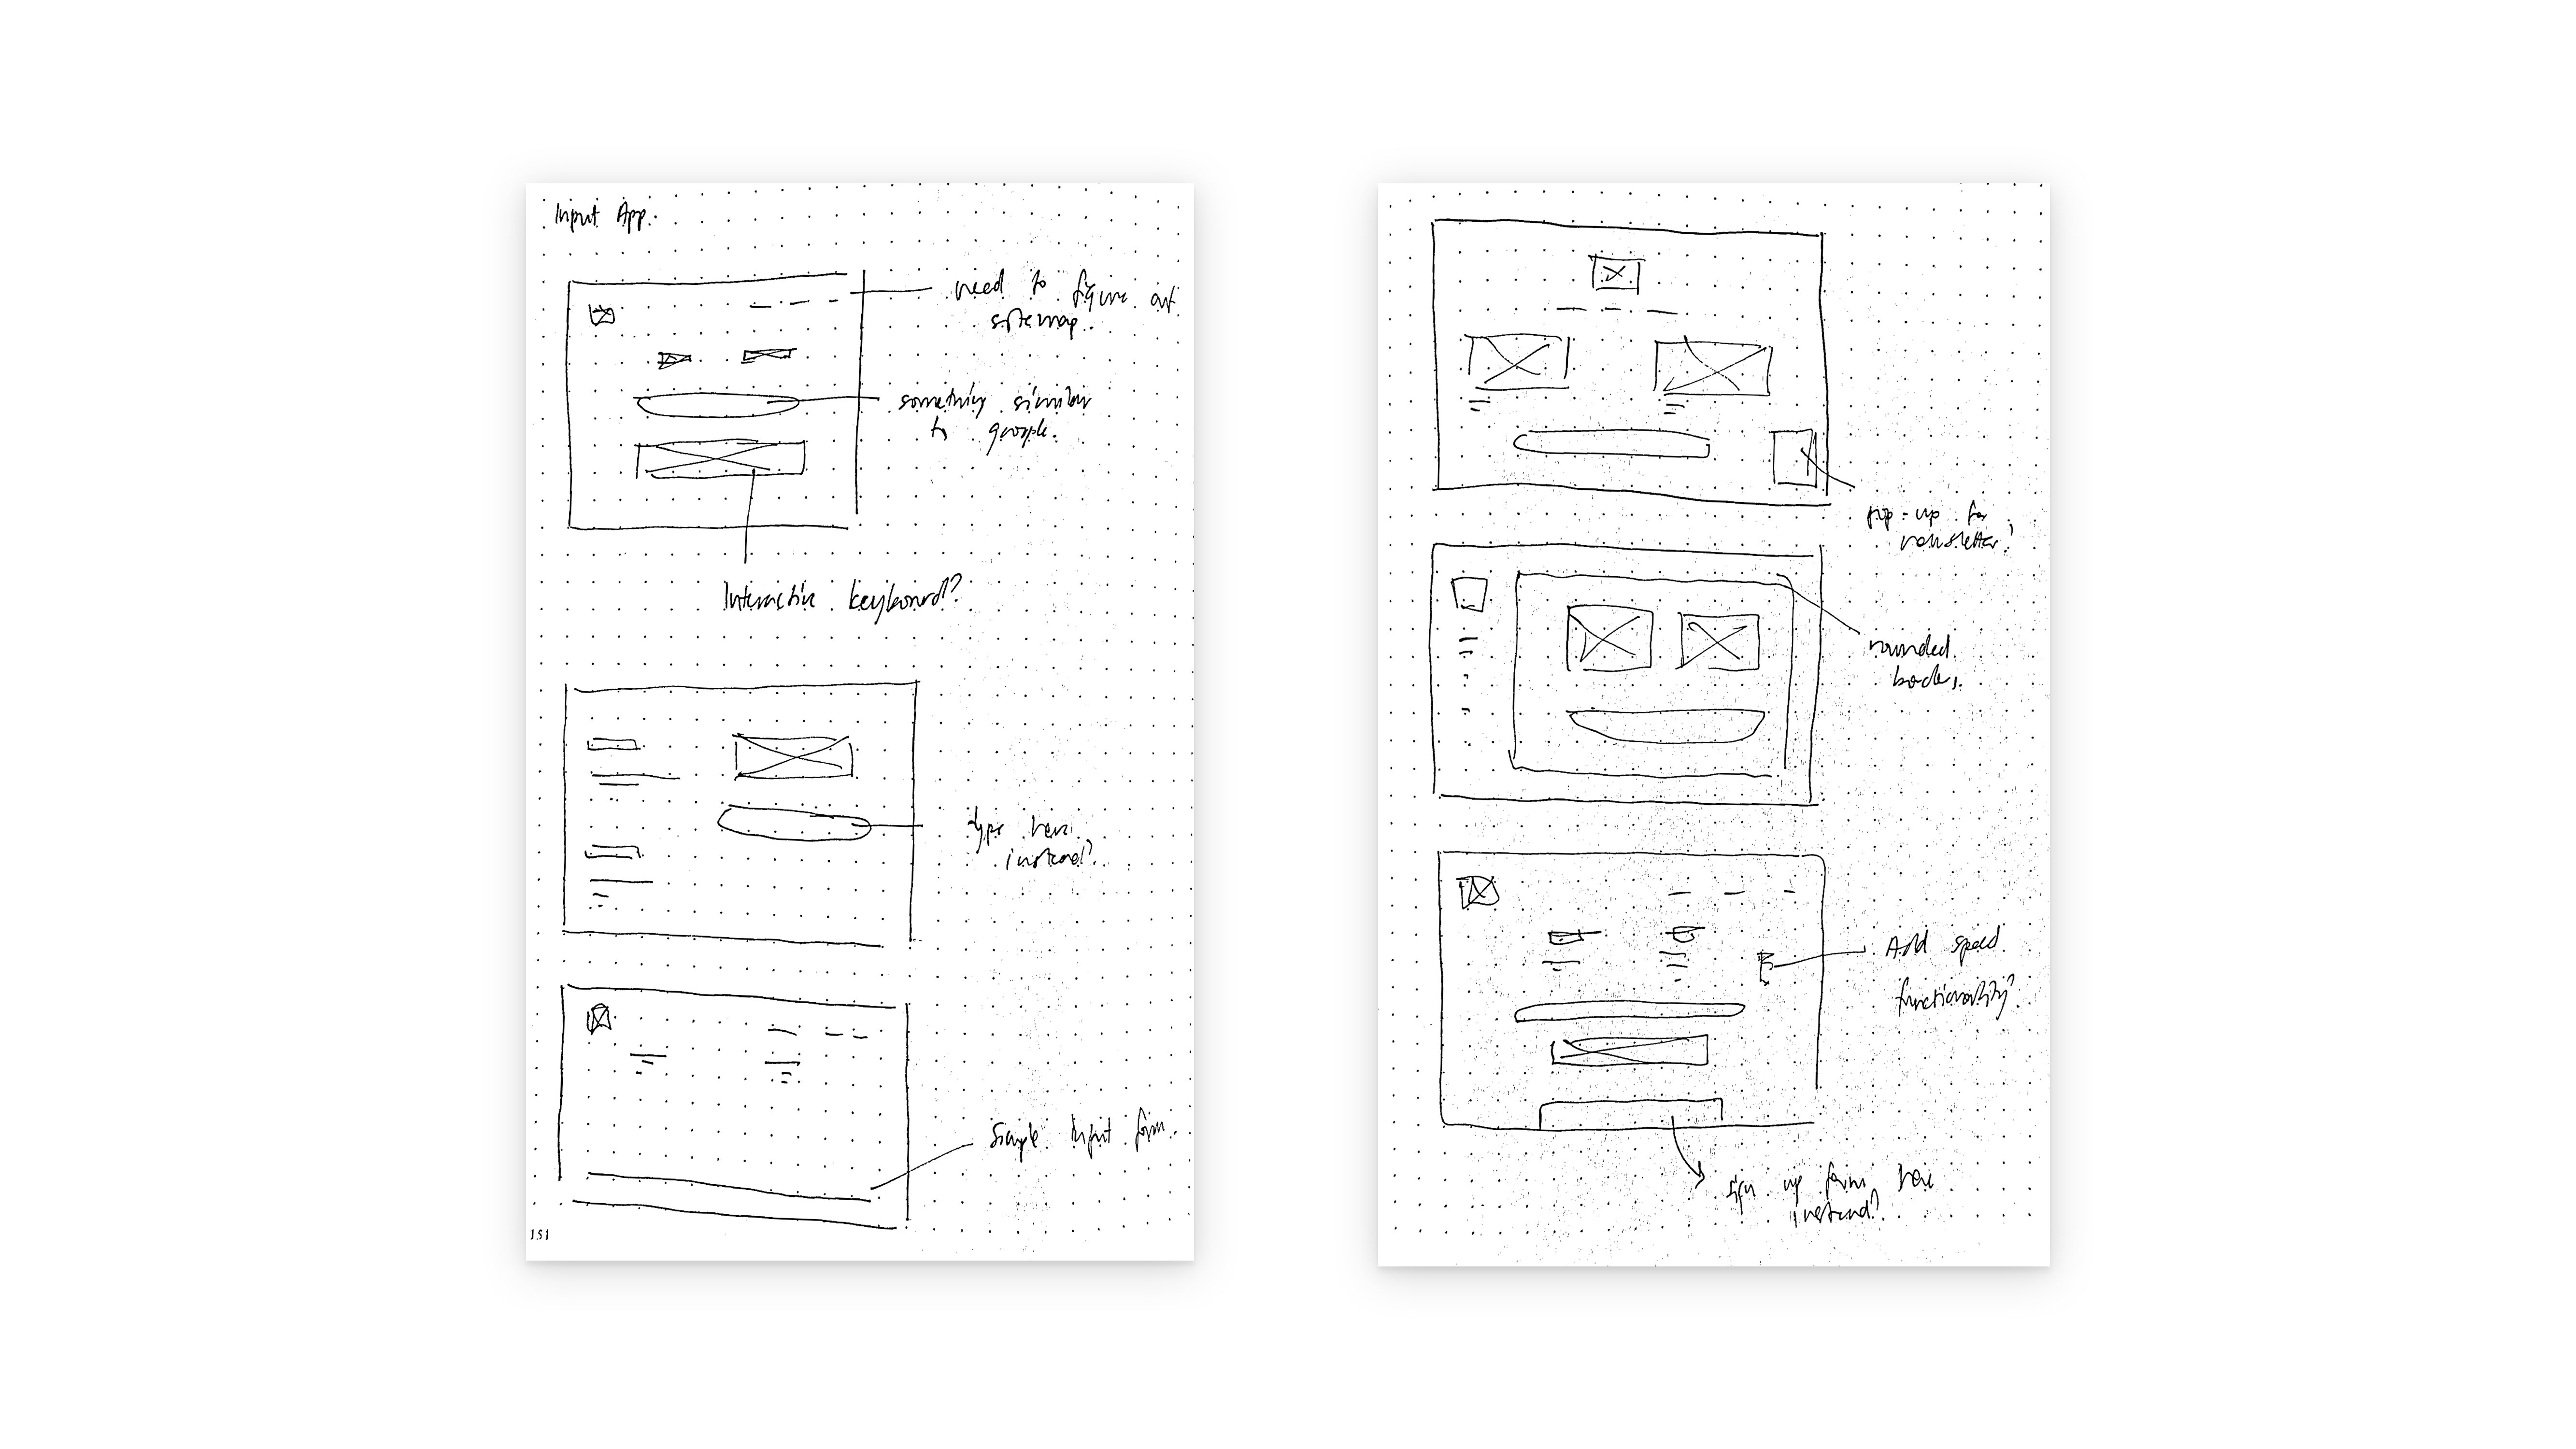 Input App.
need to figure out
sitemap.
something similar
to google.
Interactive keyboard?
type here
instead?
Simple input form.
151
pop-up for
newsletter?
rounded
border.
Add speed
functionality?
sign up form here
instead?